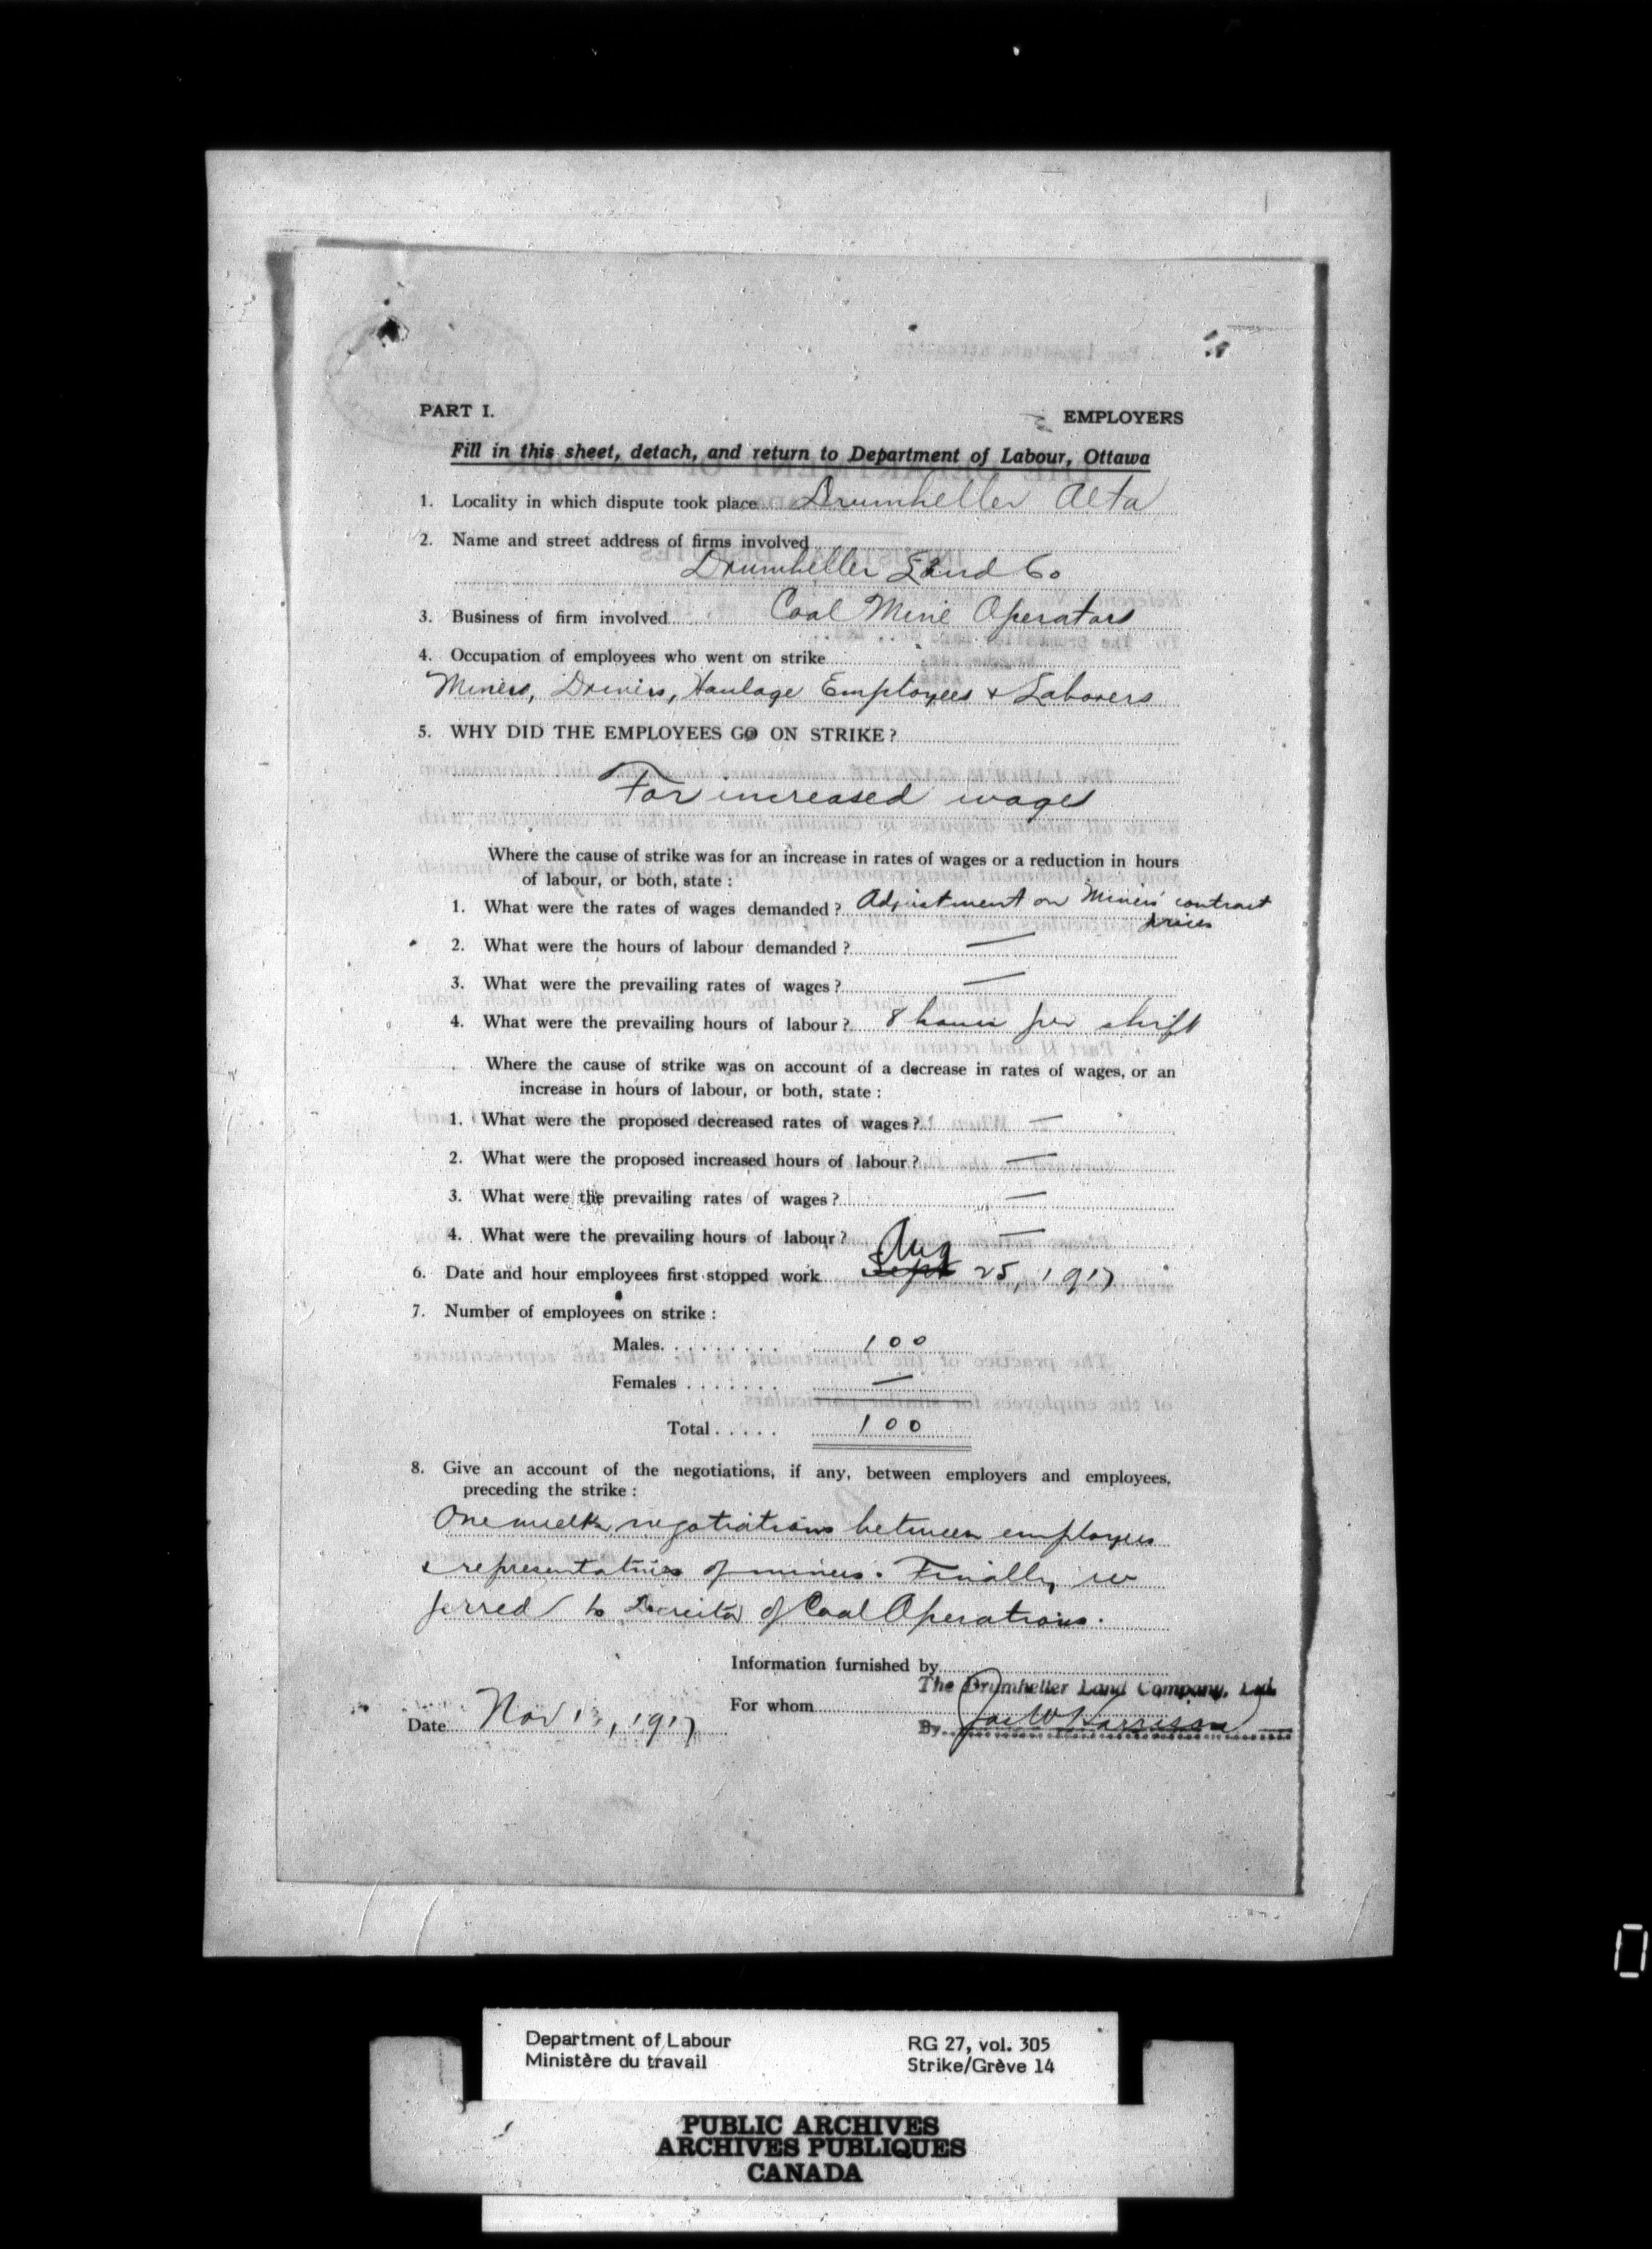 PART I. EMPLOYERS
Fill in this sheet, detach, and return to Department of Labour, Ottawa
1. Locality in which dispute took place Drumheller Alta
2. Name and street address of firms involved
Drumheller Land Co
3. Business of firm involved Coal Mine Operators
4. Occupation of employees who went on strike
Miners, Drivers, Haulage Employees & Laborers
5. WHY DID THE EMPLOYEES GO ON STRIKE?
For increased wages
Where the cause of strike was for an increase in rates of wages or a reduction in hours
of labour, or both, state :
1. What were the rates of wages demanded? Adjustment on Miners' contract
prices
2. What were the hours of labour demanded ? —
3. What were the prevailing rates of wages? —
4. What were the prevailing hours of labour? 8 hours per shift
Where the cause of strike was on account of a decrease in rates of wages, or an
increase in hours of labour, or both, state :
1. What were the proposed decreased rates of wages? —
2. What were the proposed increased hours of labour? —
3. What were the prevailing rates of wages? —
4. What were the prevailing hours of labour? —
Aug
6. Date and hour employees first stopped work Sept 25, 1917
7. Number of employees on strike :
Males. . . . . . . . . 100
Females . . . . . . . —
Total . . . . . 100
8. Give an account of the negotiations, if any, between employers and employees,
preceding the strike :
One week negotiations between employers
& representatives of miners. Finally re
ferred to Director of Coal Operations.
Information furnished by
The Drumheller Land Company, Ltd.
For whom
Date Nov 1, 1917
By Jas W Harrison
Department of Labour RG 27, vol. 305
Ministère du travail Strike/Grève 14
PUBLIC ARCHIVES
ARCHIVES PUBLIQUES
CANADA